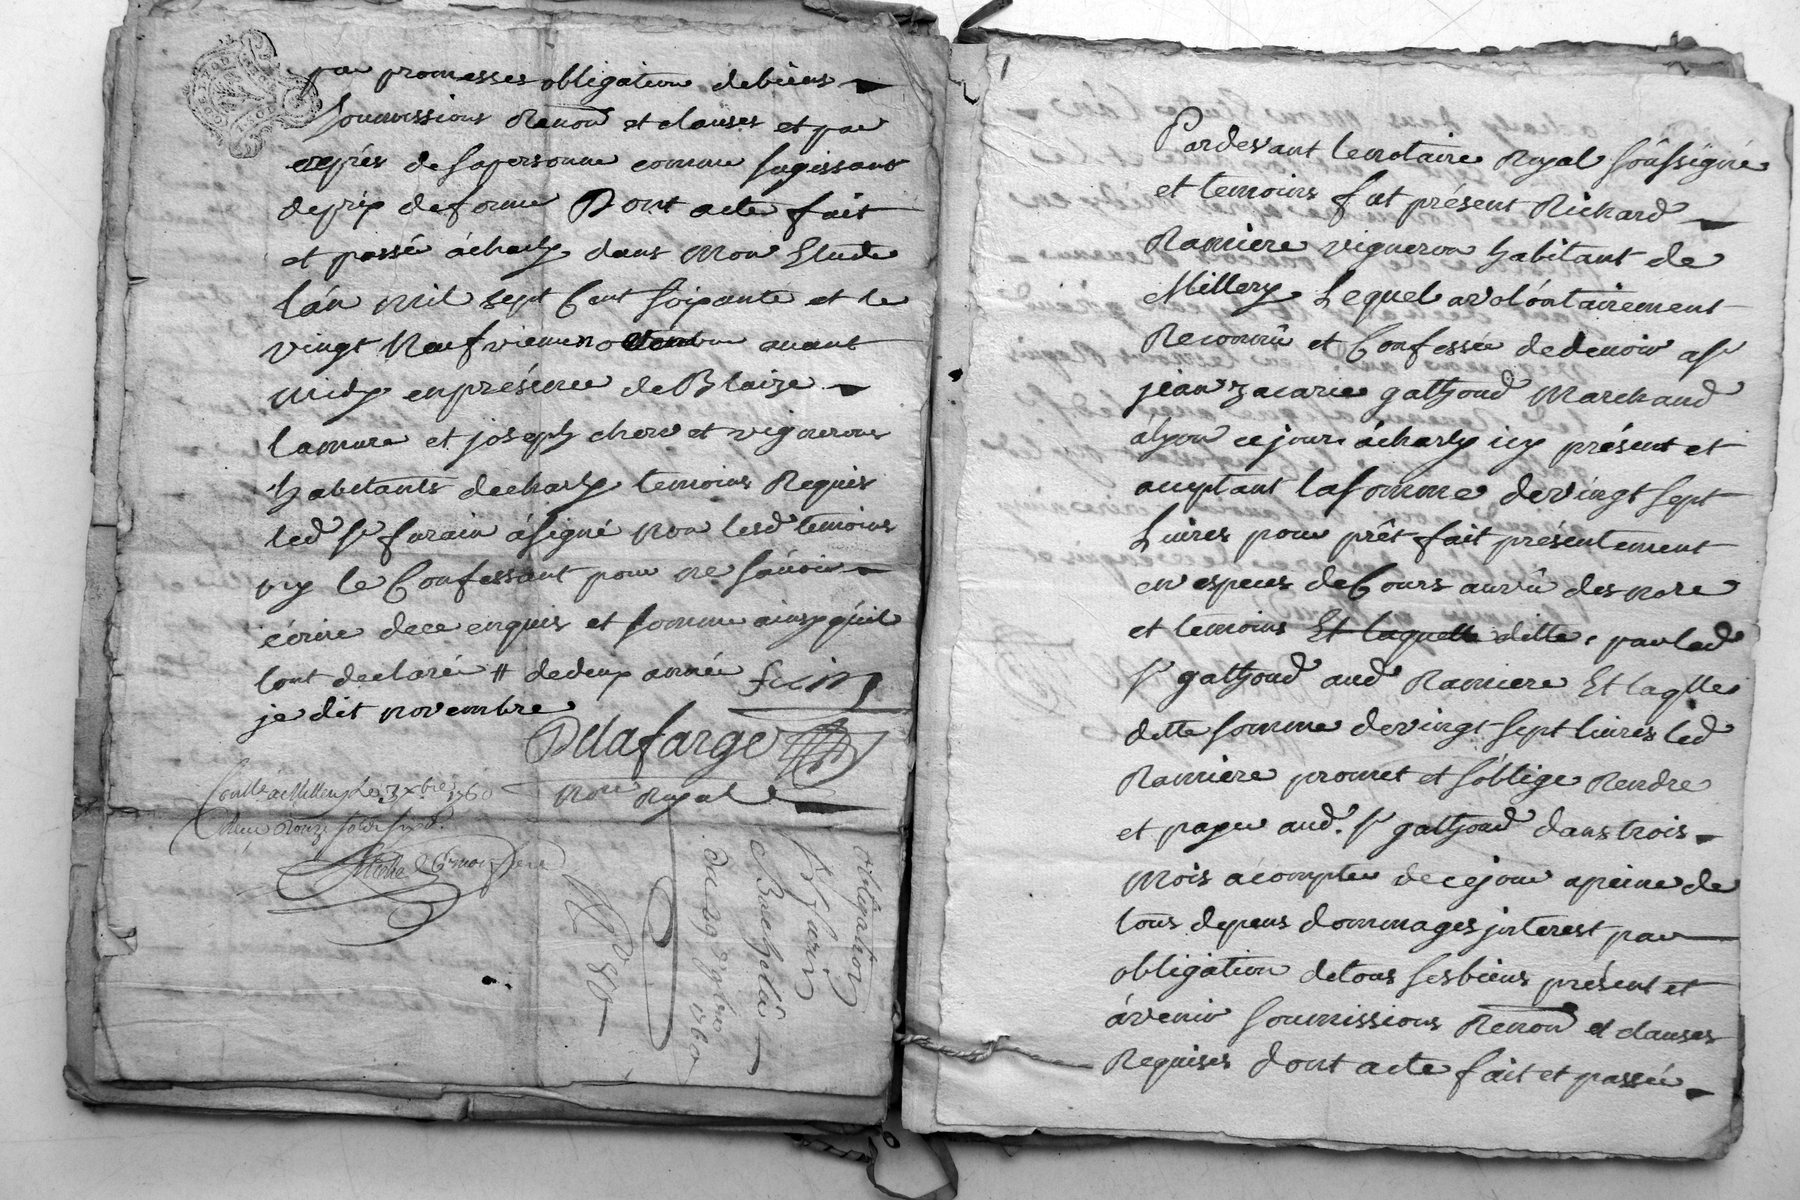 par promesses obligation debiens
soumissions Renon et clauses et par
exprés desapersonne comme sagissant
deprix deferme Dont acte fait
et passé ácharly dans Mon Etude
lán mil sept Cent soixante et le
vingt Neufvieme avant
midy enprésence deBlaize
lamure et joseph vignerons
habitants decharly temoins Requis
led sr furain ásigné Non lesd temoins
ny le Confessant pour ne sávoir
écrire dece enquis et sommé ainsy quil
lont declaré # dedeux année
je dit novembre
Delafarge
Nore Royal
Conllé aMillery Le 3 xbre 1760
Reçu
obligation
Sr furain
1760
Pardevant lenotaire Royal soussigné
et temoins fut présent Richard
Ramiere vigneron habitant de
Millery Lequel avolóntairement
Reconnû et Confessée dedevoir asr
jean zacarie gathoud Marchand
ályon cejour ácharly icy présent et
aceptant lasomme devingt sept
Livres pour prêt fait présentement
en especes deCours auvû des nore
et temoins Et laquelle ditte, parled
sr gathoud aud Ramiere Et laqlle
ditte somme devingt sept livres led
Ramiere promet et sóblige Rendre
et payer aud. sr gathoud dans trois
Mois acompter decejour apeine de
tous depens dommages jnterest par
obligation detous sesbiens présent et
ávenir soumissions Renon et clauses
Requises dont acte fait et passée